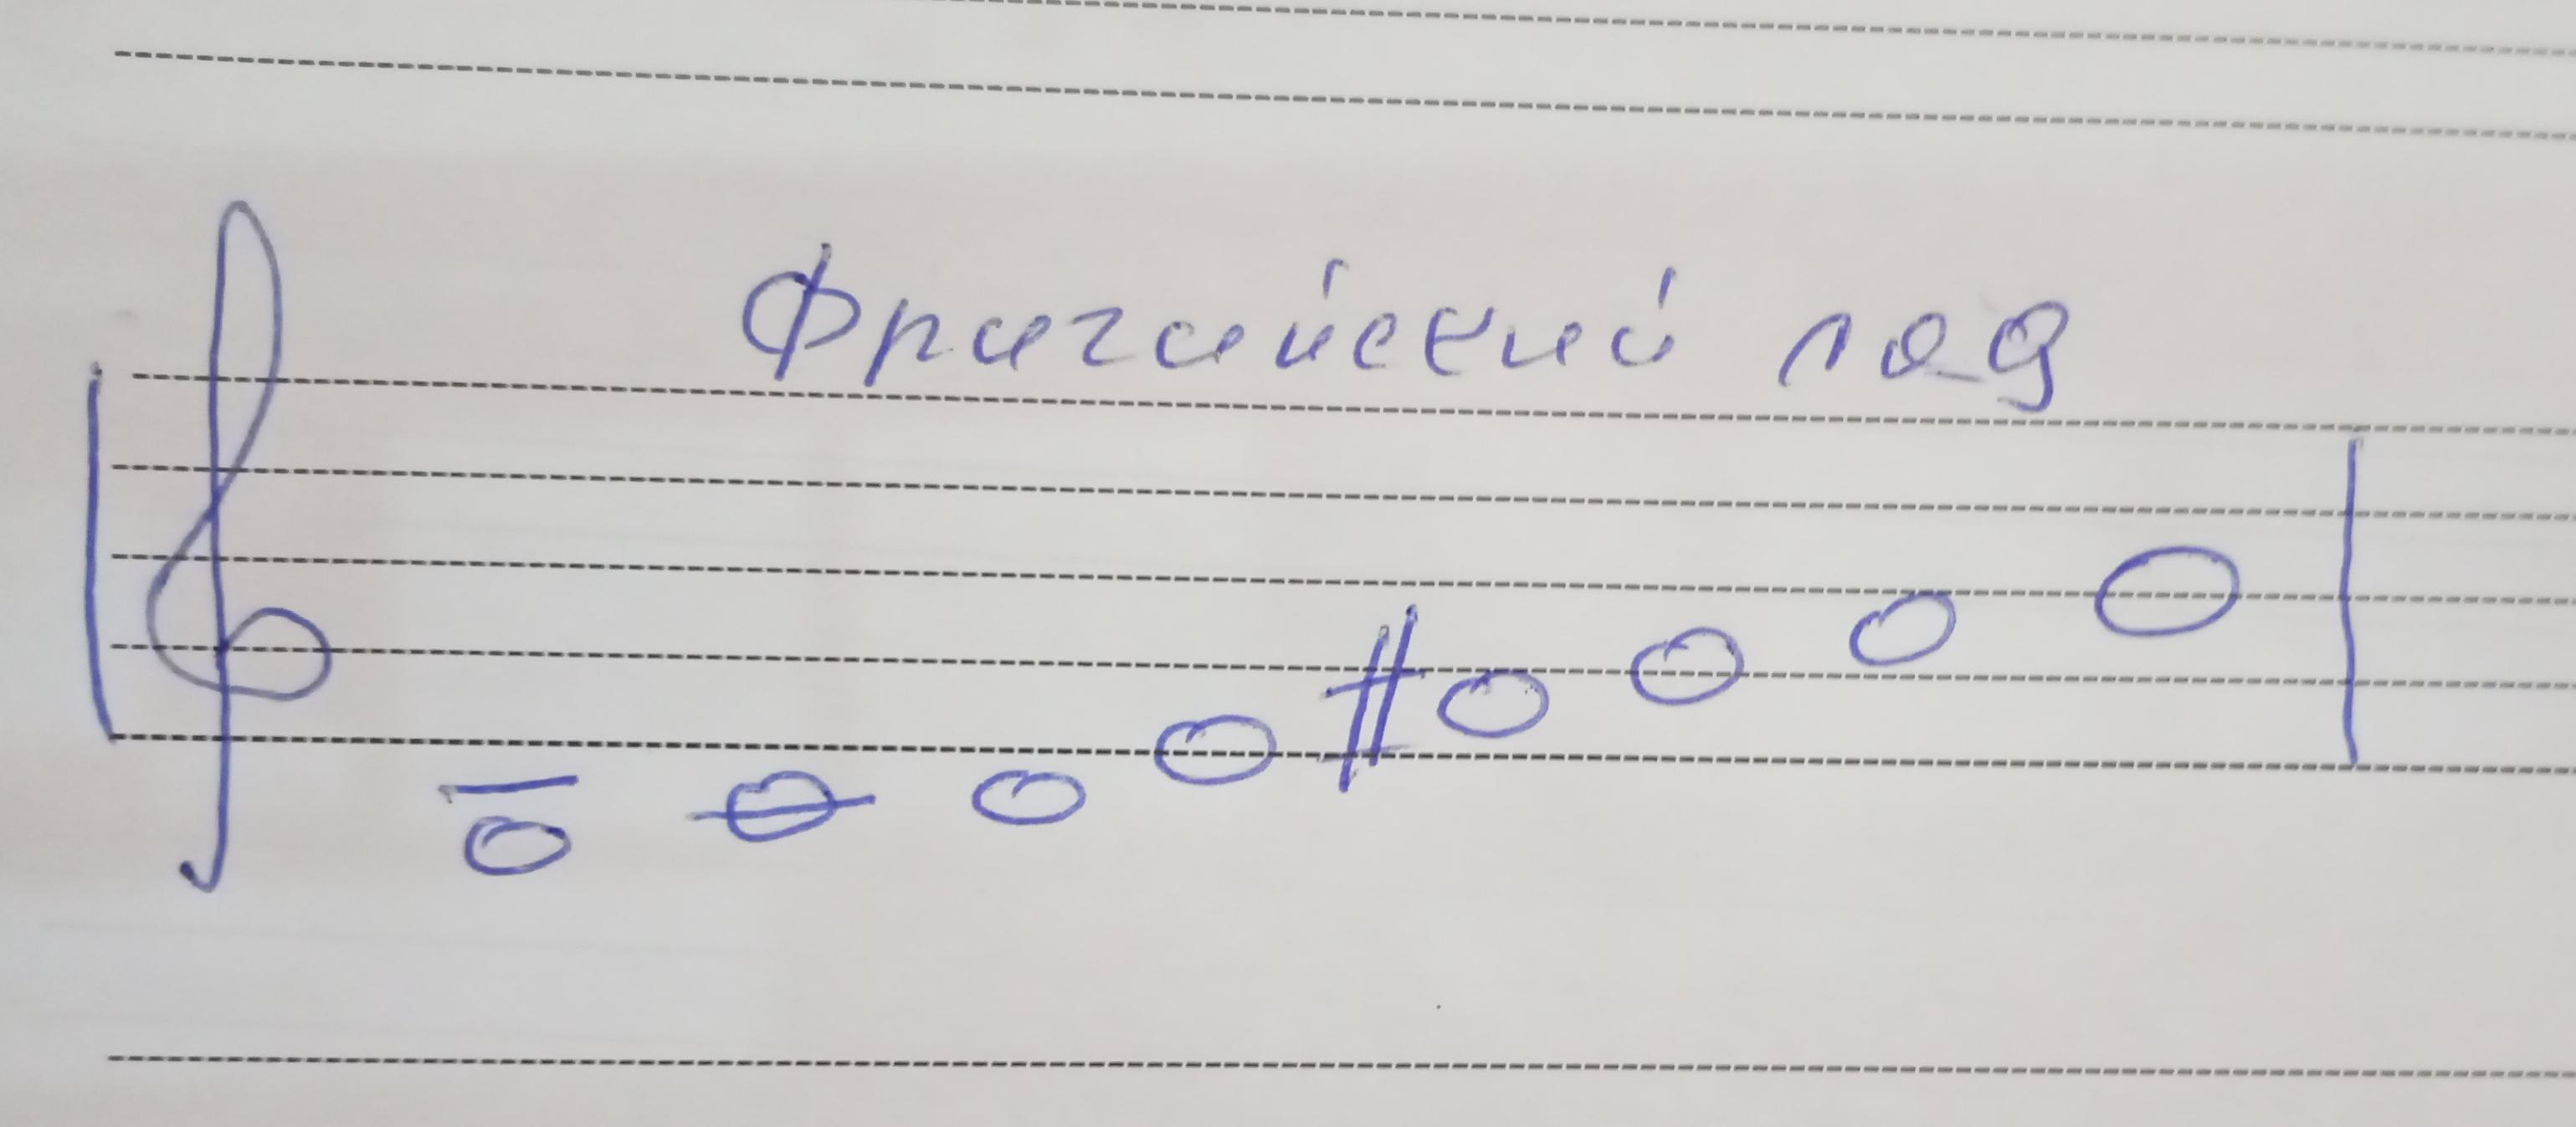 Фригийский лад